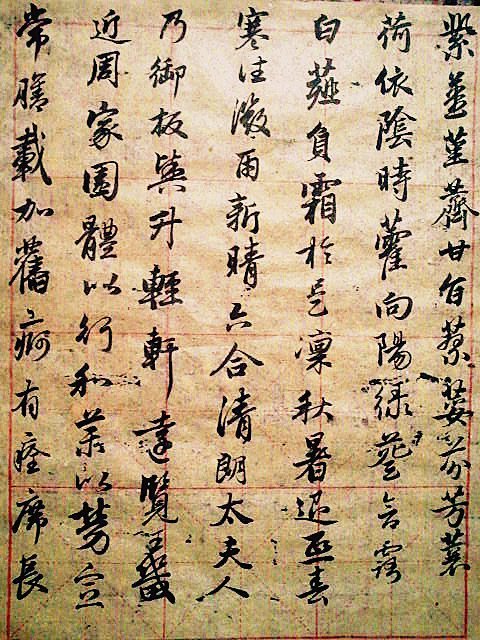 紫薑堇薺甘旨蓼荽芬芳蘘
荷依陰時藿向陽綠葵含露
白薤負霜於是凜秋暑退熙春
寒往微雨新晴六合清朗太夫人
乃御板輿升輕軒遠覽王畿
近周家園體以行和藥以勞宣
常膳載加舊痾有痊席長